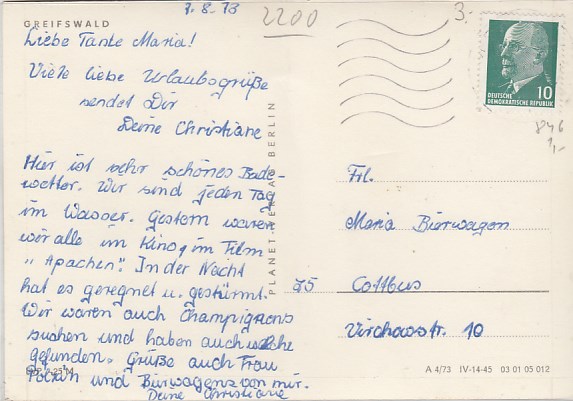 7.8.73
2200
3.-
GREIFSWALD
Liebe Tante Maria!
Viele liebe Urlaubsgrüße
sendet Dir
Deine Christiane
Hier ist sehr schönes Bade-
wetter. Wir sind jeden Tag
im Wasser. Gestern waren
wir alle im Kino, im Film
"Apachen". In der Nacht
hat es geregnet u. gestürmt.
Wir waren auch Champignons
suchen und haben auch welche
gefunden. Grüße auch Frau
und Bürwagens von mir.
Deine Christiane
PLANET-VERLAG BERLIN
10
DEUTSCHE
DEMOKRATISCHE REPUBLIK
846
1,-
Frl.
Maria Bürwagen
75 Cottbus
Virchowstr. 10
A 4/73 IV-14-45 03 01 05 012